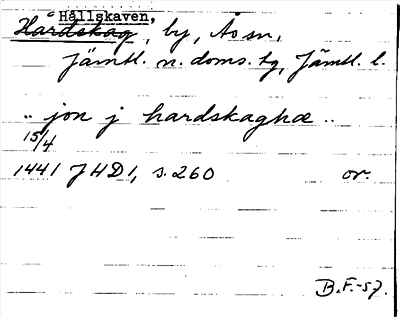 Hållskaven,
Hårdskag, by, Ås sn,
Jämtl. n. doms. tg, Jämtl. l.
.. jon j hardskaghæ ..
15/4
1441 JHD1, s. 260 or.
B.F.-57.